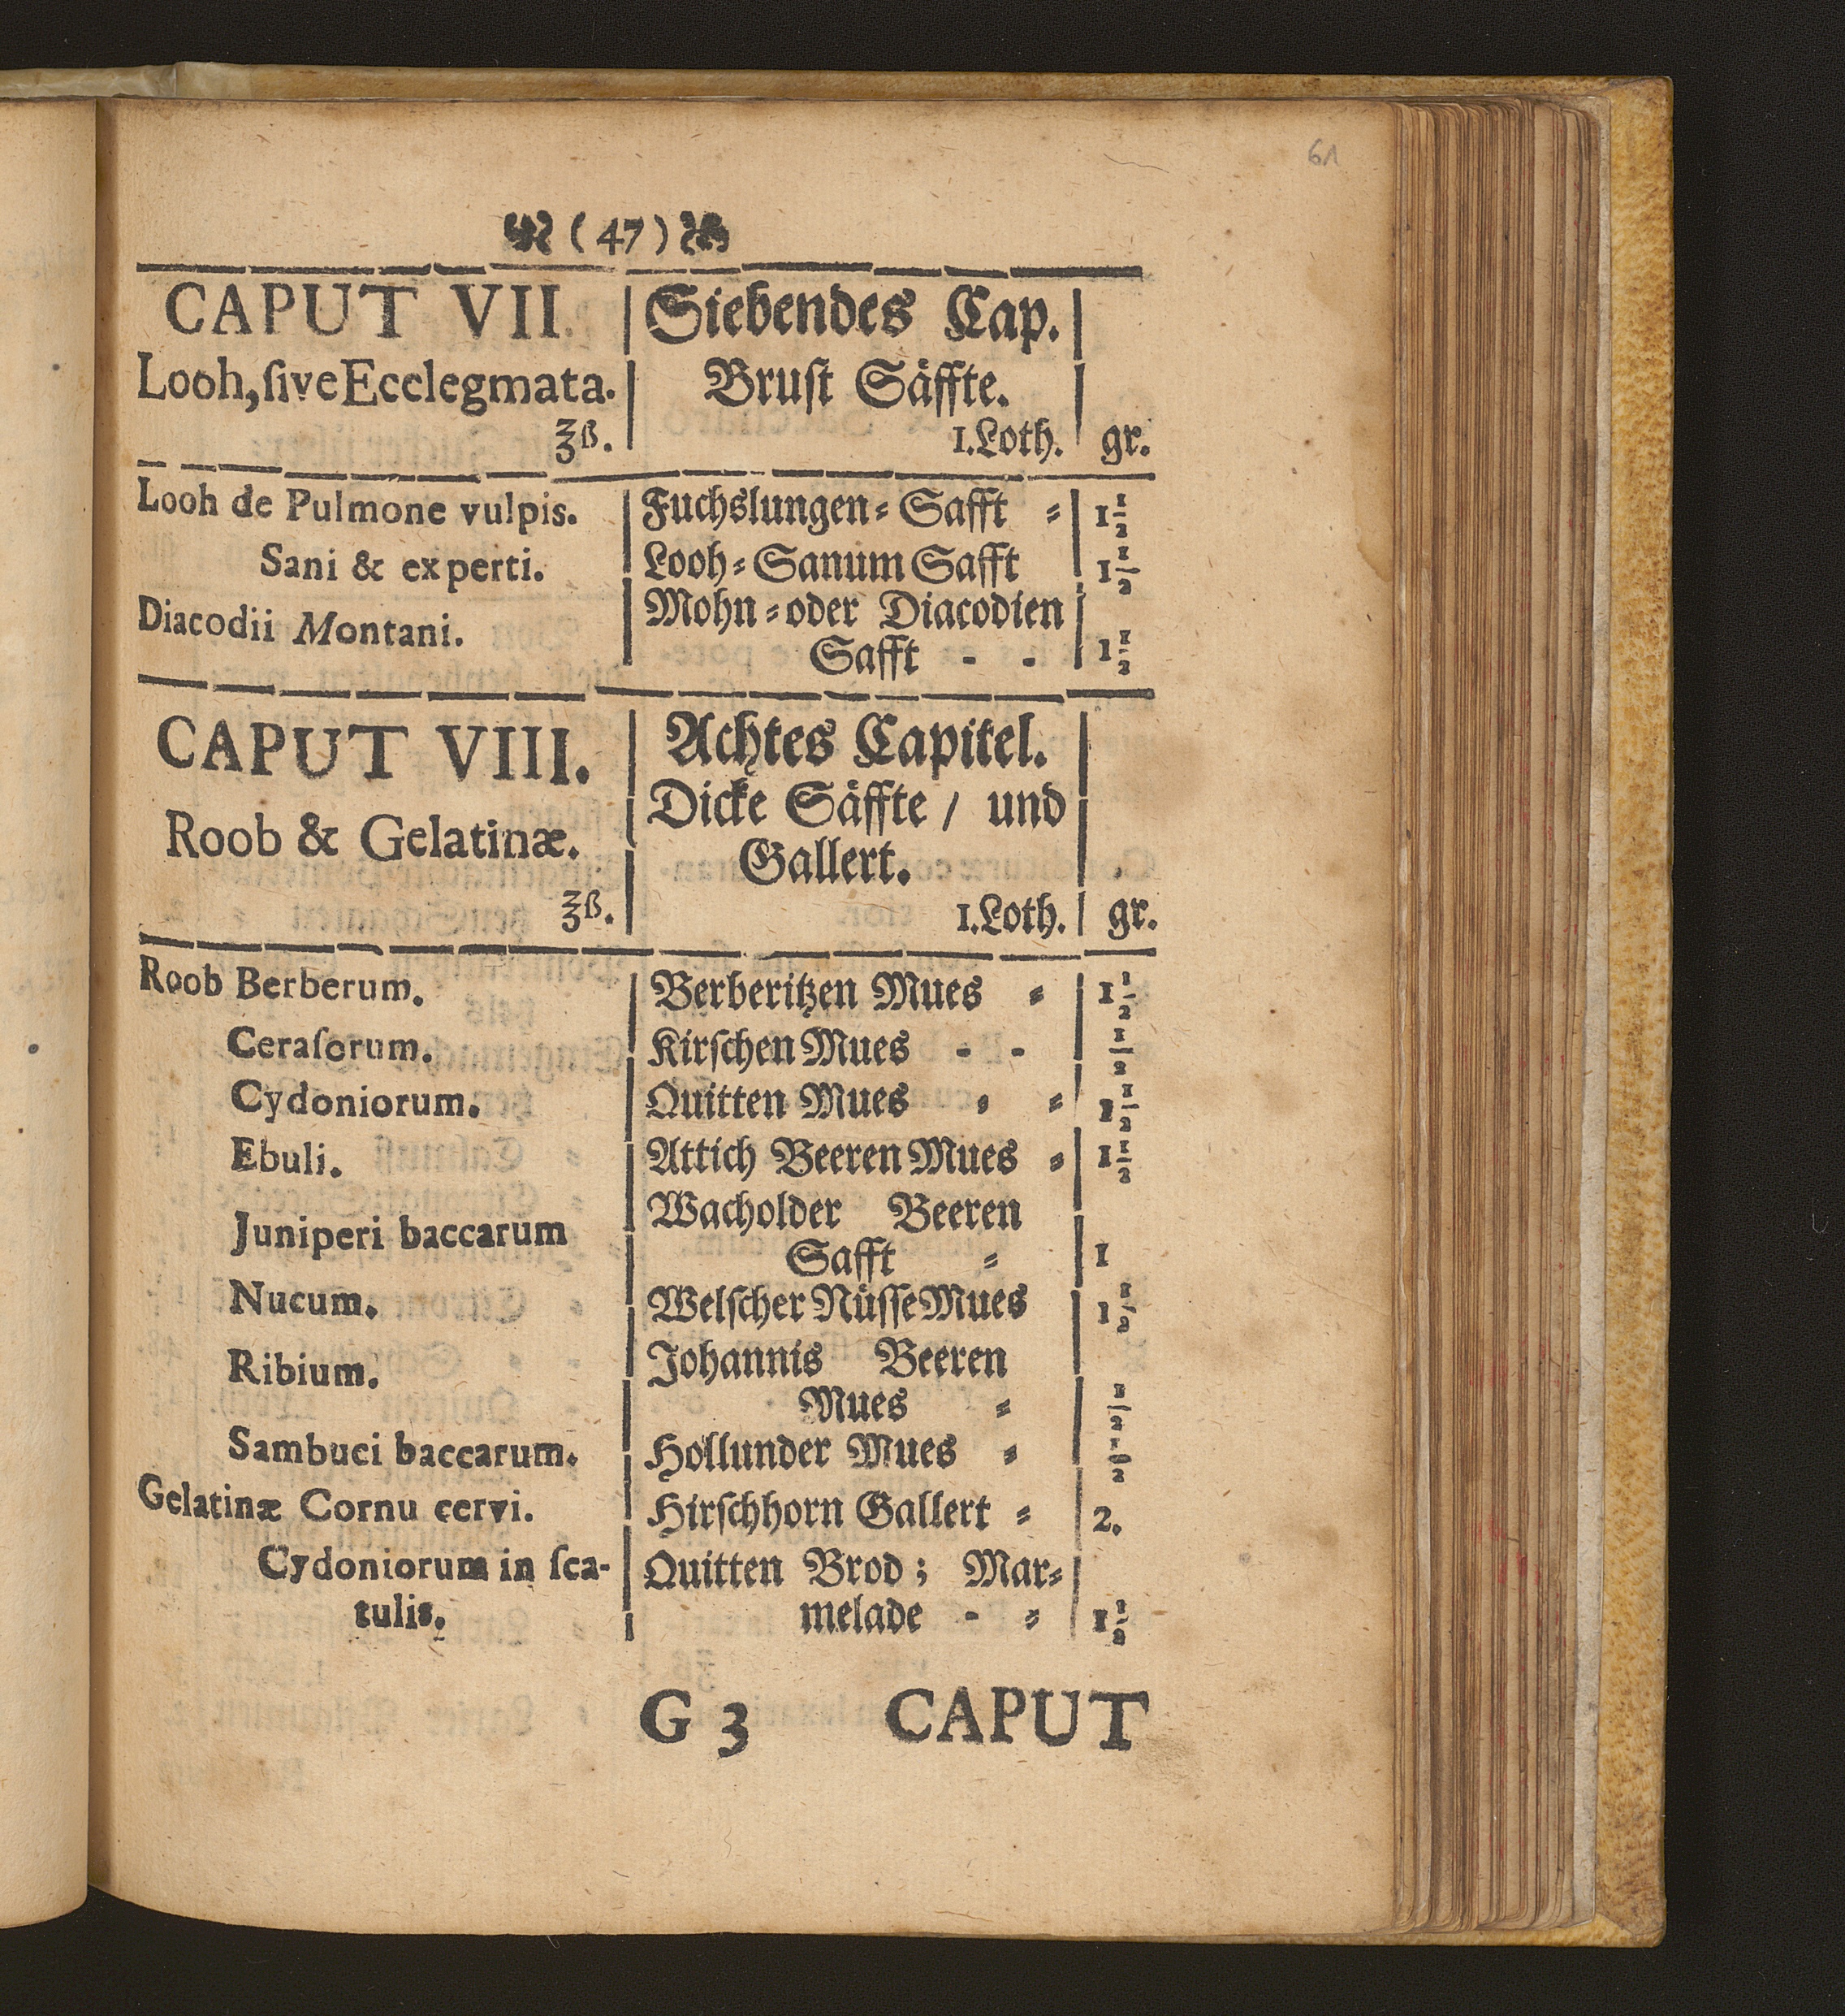 61
(47)
CAPUT VII. | Siebendes Cap.
Looh, ſive Ecclegmata. | Bruſt Säffte.
ʒß. | 1. Loth. | gr.
Looh de Pulmone vulpis. | Fuchslungen⸗Safft ⸗ | 1 1/2
Sani & experti. | Looh⸗Sanum Safft | 1 1/2
Diacodii Montani. | Mohn⸗oder Diacodien
Safft - - | 1 1/2
CAPUT VIII. | Achtes Capitel.
Roob & Gelatinæ. | Dicke Säffte / und
Gallert.
ʒß. | 1. Loth. | gr.
Roob Berberum. | Berberitzen Mues ⸗ | 1 1/2
Ceraſorum. | Kirſchen Mues - - | 1/2
Cydoniorum. | Quitten Mues ⸗ ⸗ | 1 1/2
Ebuli. | Attich Beeren Mues ⸗ | 1 1/2
Juniperi baccarum | Wacholder Beeren
Safft ⸗ | 1
Nucum. | Welſcher Nüſſe Mues | 1 1/2
Ribium. | Johannis Beeren
Mues ⸗ | 1/2
Sambuci baccarum. | Hollunder Mues ⸗ | 1/2
Gelatinæ Cornu cervi. | Hirſchhorn Gallert ⸗ | 2.
Cydoniorum in ſca- | Quitten Brod; Mar⸗
tulis. | melade - ⸗ | 1 1/2
G 3 CAPUT